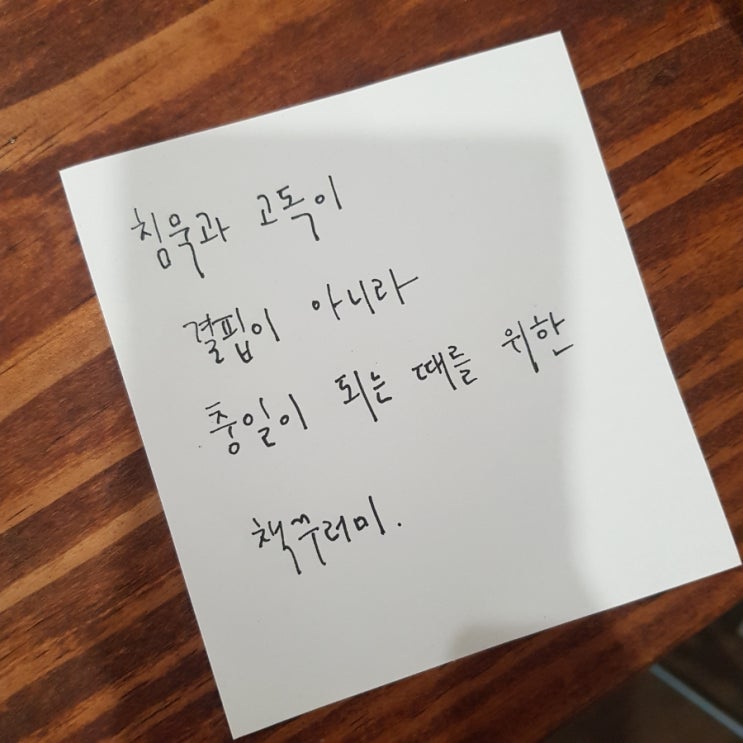 침묵과 고독이
결핍이 아니라
충일이 되는 때를 위한
책꾸러미.